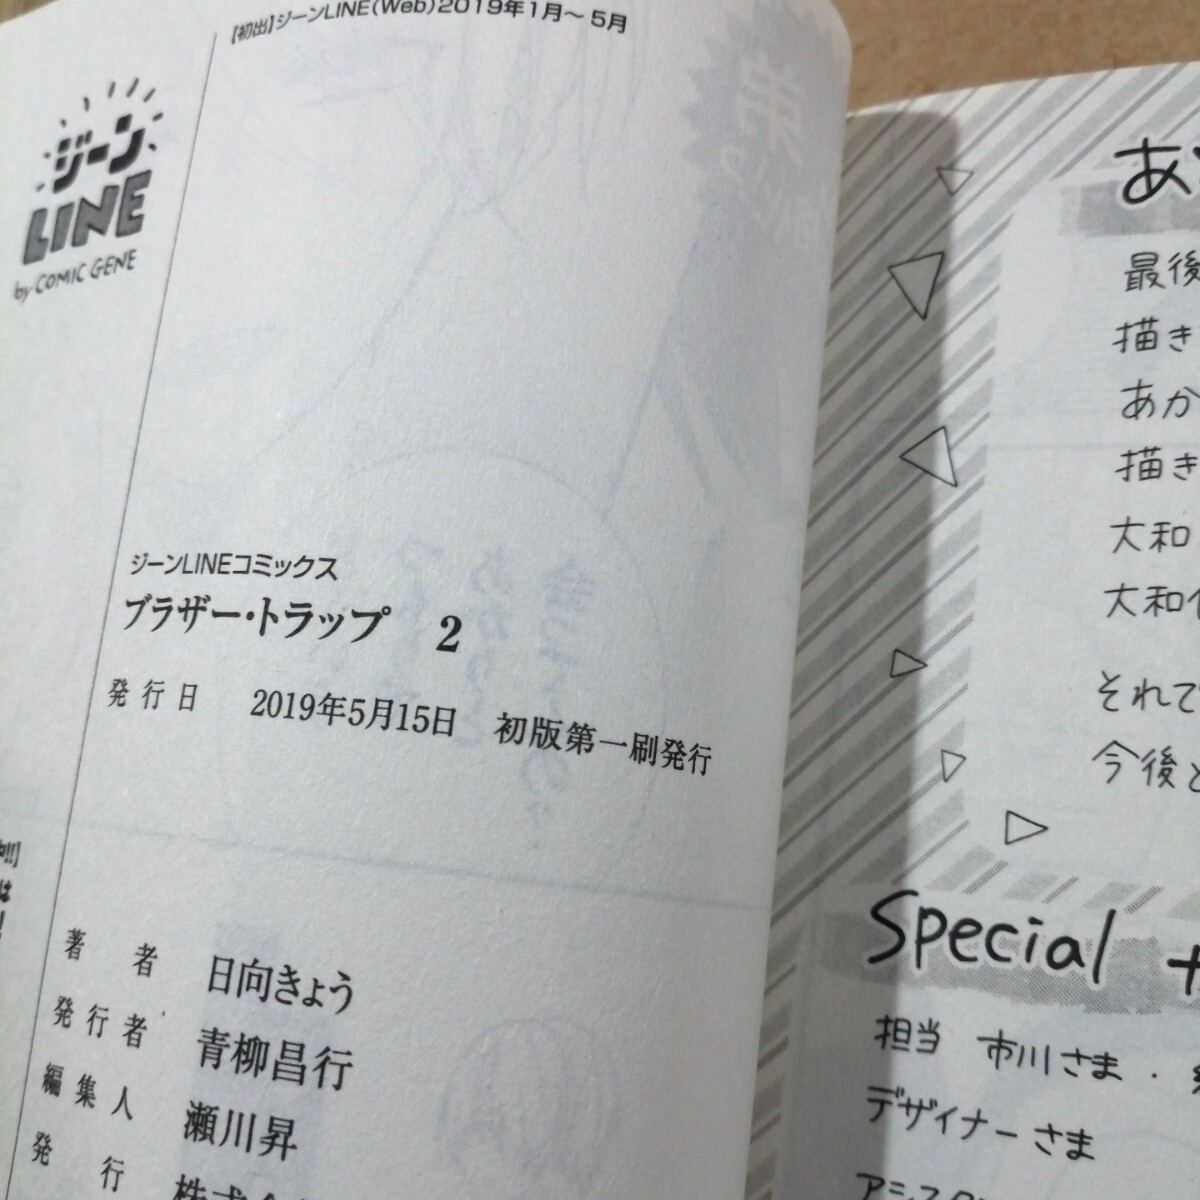 【初出】ジーンLINE(Web)2019年1月～5月
ジーン
LINE
by COMIC GENE
ジーンLINEコミックス
ブラザー・トラップ 2
発行日 2019年5月15日 初版第一刷発行
著者 日向きょう
発行者 青柳昌行
編集人 瀬川昇
発行
最後
描き
あか
描き
大和
大和
それて
今後
Special
担当 市川さま・
デザイナーさま